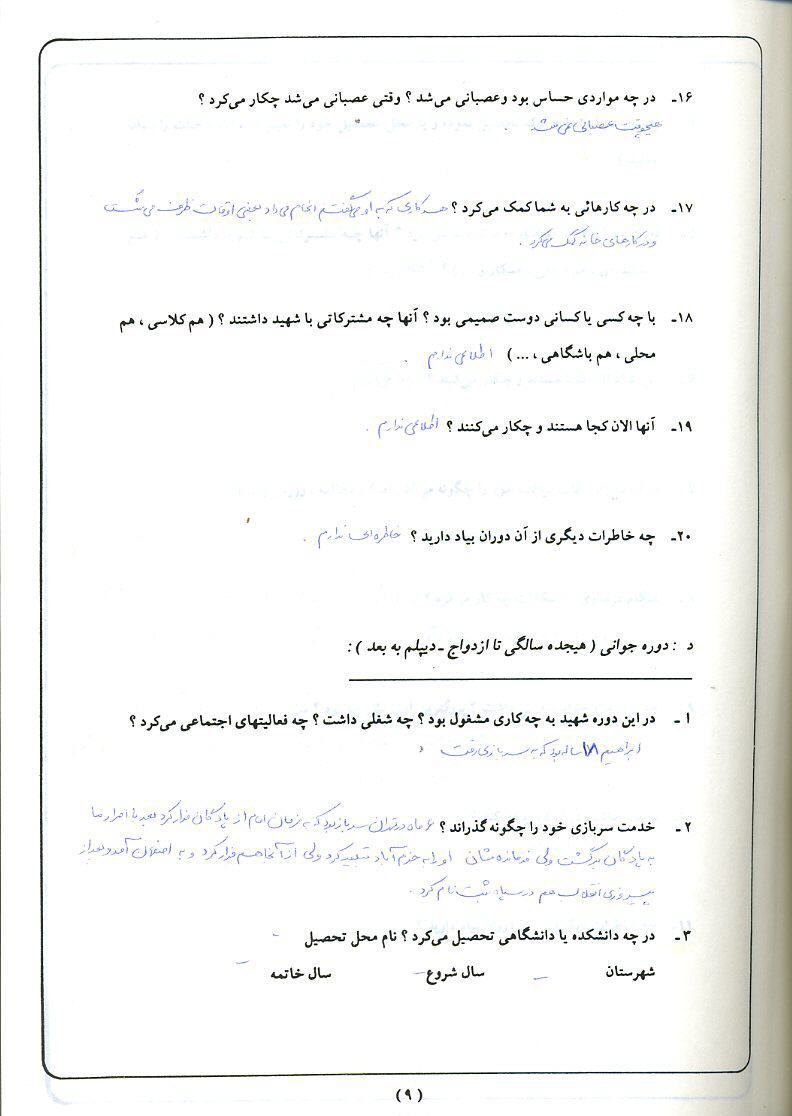 ۱۶ـ در چه مواردی حساس بود وعصبانی می‌شد ؟ وقتی عصبانی می‌شد چکار می‌کرد ؟
هیچوقت عصبانی نمی‌شد
۱۷ـ در چه کارهائی به شما کمک می‌کرد ؟ هر کاری که به او می‌گفتم انجام می‌داد بعضی اوقات ظرف می‌شست
و در کارهای خانه کمک می‌کرد .
۱۸ـ با چه کسی یا کسانی دوست صمیمی بود ؟ آنها چه مشترکاتی با شهید داشتند ؟ ( هم کلاسی ، هم
محلی ، هم باشگاهی ، ... ) اطلاعی ندارم .
۱۹ـ آنها الان کجا هستند و چکار می‌کنند ؟ اطلاعی ندارم .
۲۰ـ چه خاطرات دیگری از آن دوران بیاد دارید ؟ خاطره‌ای ندارم .
د : دوره جوانی ( هیجده سالگی تا ازدواج ـ دیپلم به بعد ) :
۱ ـ در این دوره شهید به چه کاری مشغول بود ؟ چه شغلی داشت ؟ چه فعالیتهای اجتماعی می‌کرد ؟
ابراهیم ۱۸ ساله بود که به سربازی رفت
۲ ـ خدمت سربازی خود را چگونه گذراند ؟ ۶ ماه در تهران سرباز بود که به فرمان امام از پادگان فرار کرد بعد با اصرار ما
به پادگان برگشت ولی فرمانده‌شان او را به خرم آباد تبعید کرد ولی از آنجا هم فرار کرد و به اصفهان آمد و بعد از
پیروزی انقلاب هم در سپاه ثبت نام کرد .
۳ ـ در چه دانشکده یا دانشگاهی تحصیل می‌کرد ؟ نام محل تحصیل -
شهرستان - سال شروع - سال خاتمه -
( ۹ )